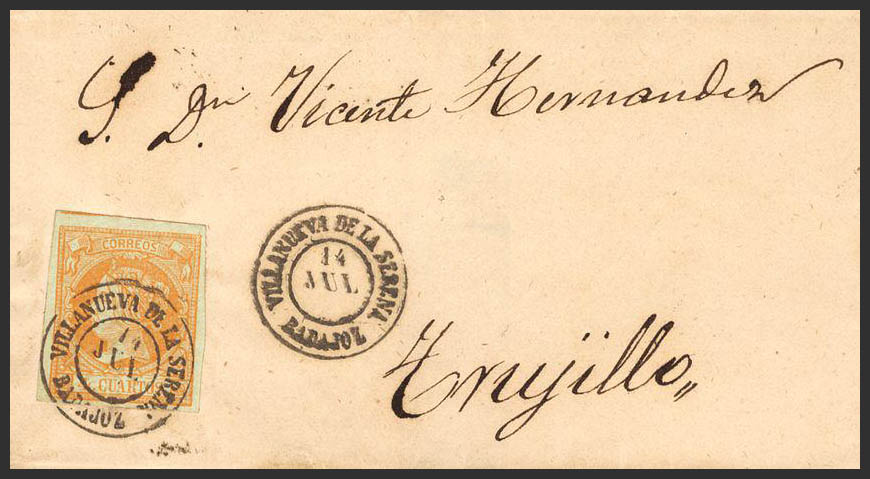 S. Dn. Vicente Hernandez
Trujillo„
VILLANUEVA DE LA SERENA
14
JUL
BADAJOZ
CORREOS
CUARTOS
VILLANUEVA DE LA SERENA
14
JUL
BADAJOZ